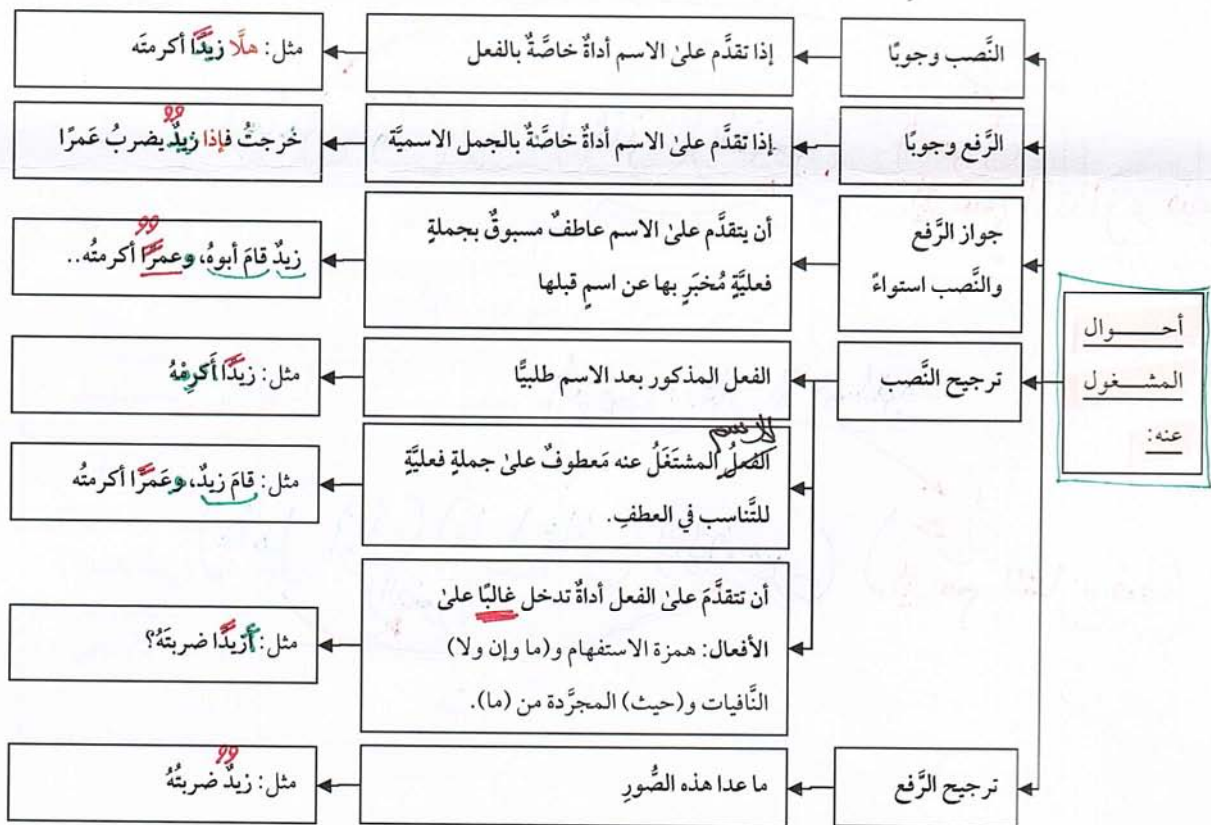 أحـــوال
المشــغول
عنه:
النَّصب وجوبًا
إذا تقدَّم علىٰ الاسم أداةٌ خاصَّةٌ بالفعل
مثل: هلَّا زيدًا أكرمتَه
الرَّفع وجوبًا
إذا تقدَّم علىٰ الاسم أداةٌ خاصَّةٌ بالجمل الاسميَّة
خرجتُ فإذا زيدٌ يضربُ عَمرًا
جواز الرَّفع
والنَّصب استواءً
أن يتقدَّم علىٰ الاسم عاطفٌ مسبوقٌ بجملةٍ
فعليَّةٍ مُخبَرٍ بها عن اسمٍ قبلها
زيدٌ قامَ أبوهُ، وعمرًا أكرمتُه..
ترجيح النَّصب
الفعل المذكور بعد الاسم طلبيًّا
مثل: زيدًا أَكرِمْهُ
الاسم
الفعلُ المشتَغَلُ عنه مَعطوفٌ علىٰ جملةٍ فعليَّةٍ
للتَّناسب في العطفِ.
مثل: قامَ زيدٌ، وعَمرًا أكرمتُه
أن تتقدَّمَ علىٰ الفعل أداةٌ تدخل غالبًا علىٰ
الأفعال: همزة الاستفهام و(ما وإن ولا)
النَّافيات و(حيث) المجرَّدة من (ما).
مثل: أزيدًا ضربتَهُ؟
ترجيح الرَّفع
ما عدا هذه الصُّورِ
مثل: زيدٌ ضربتُهُ